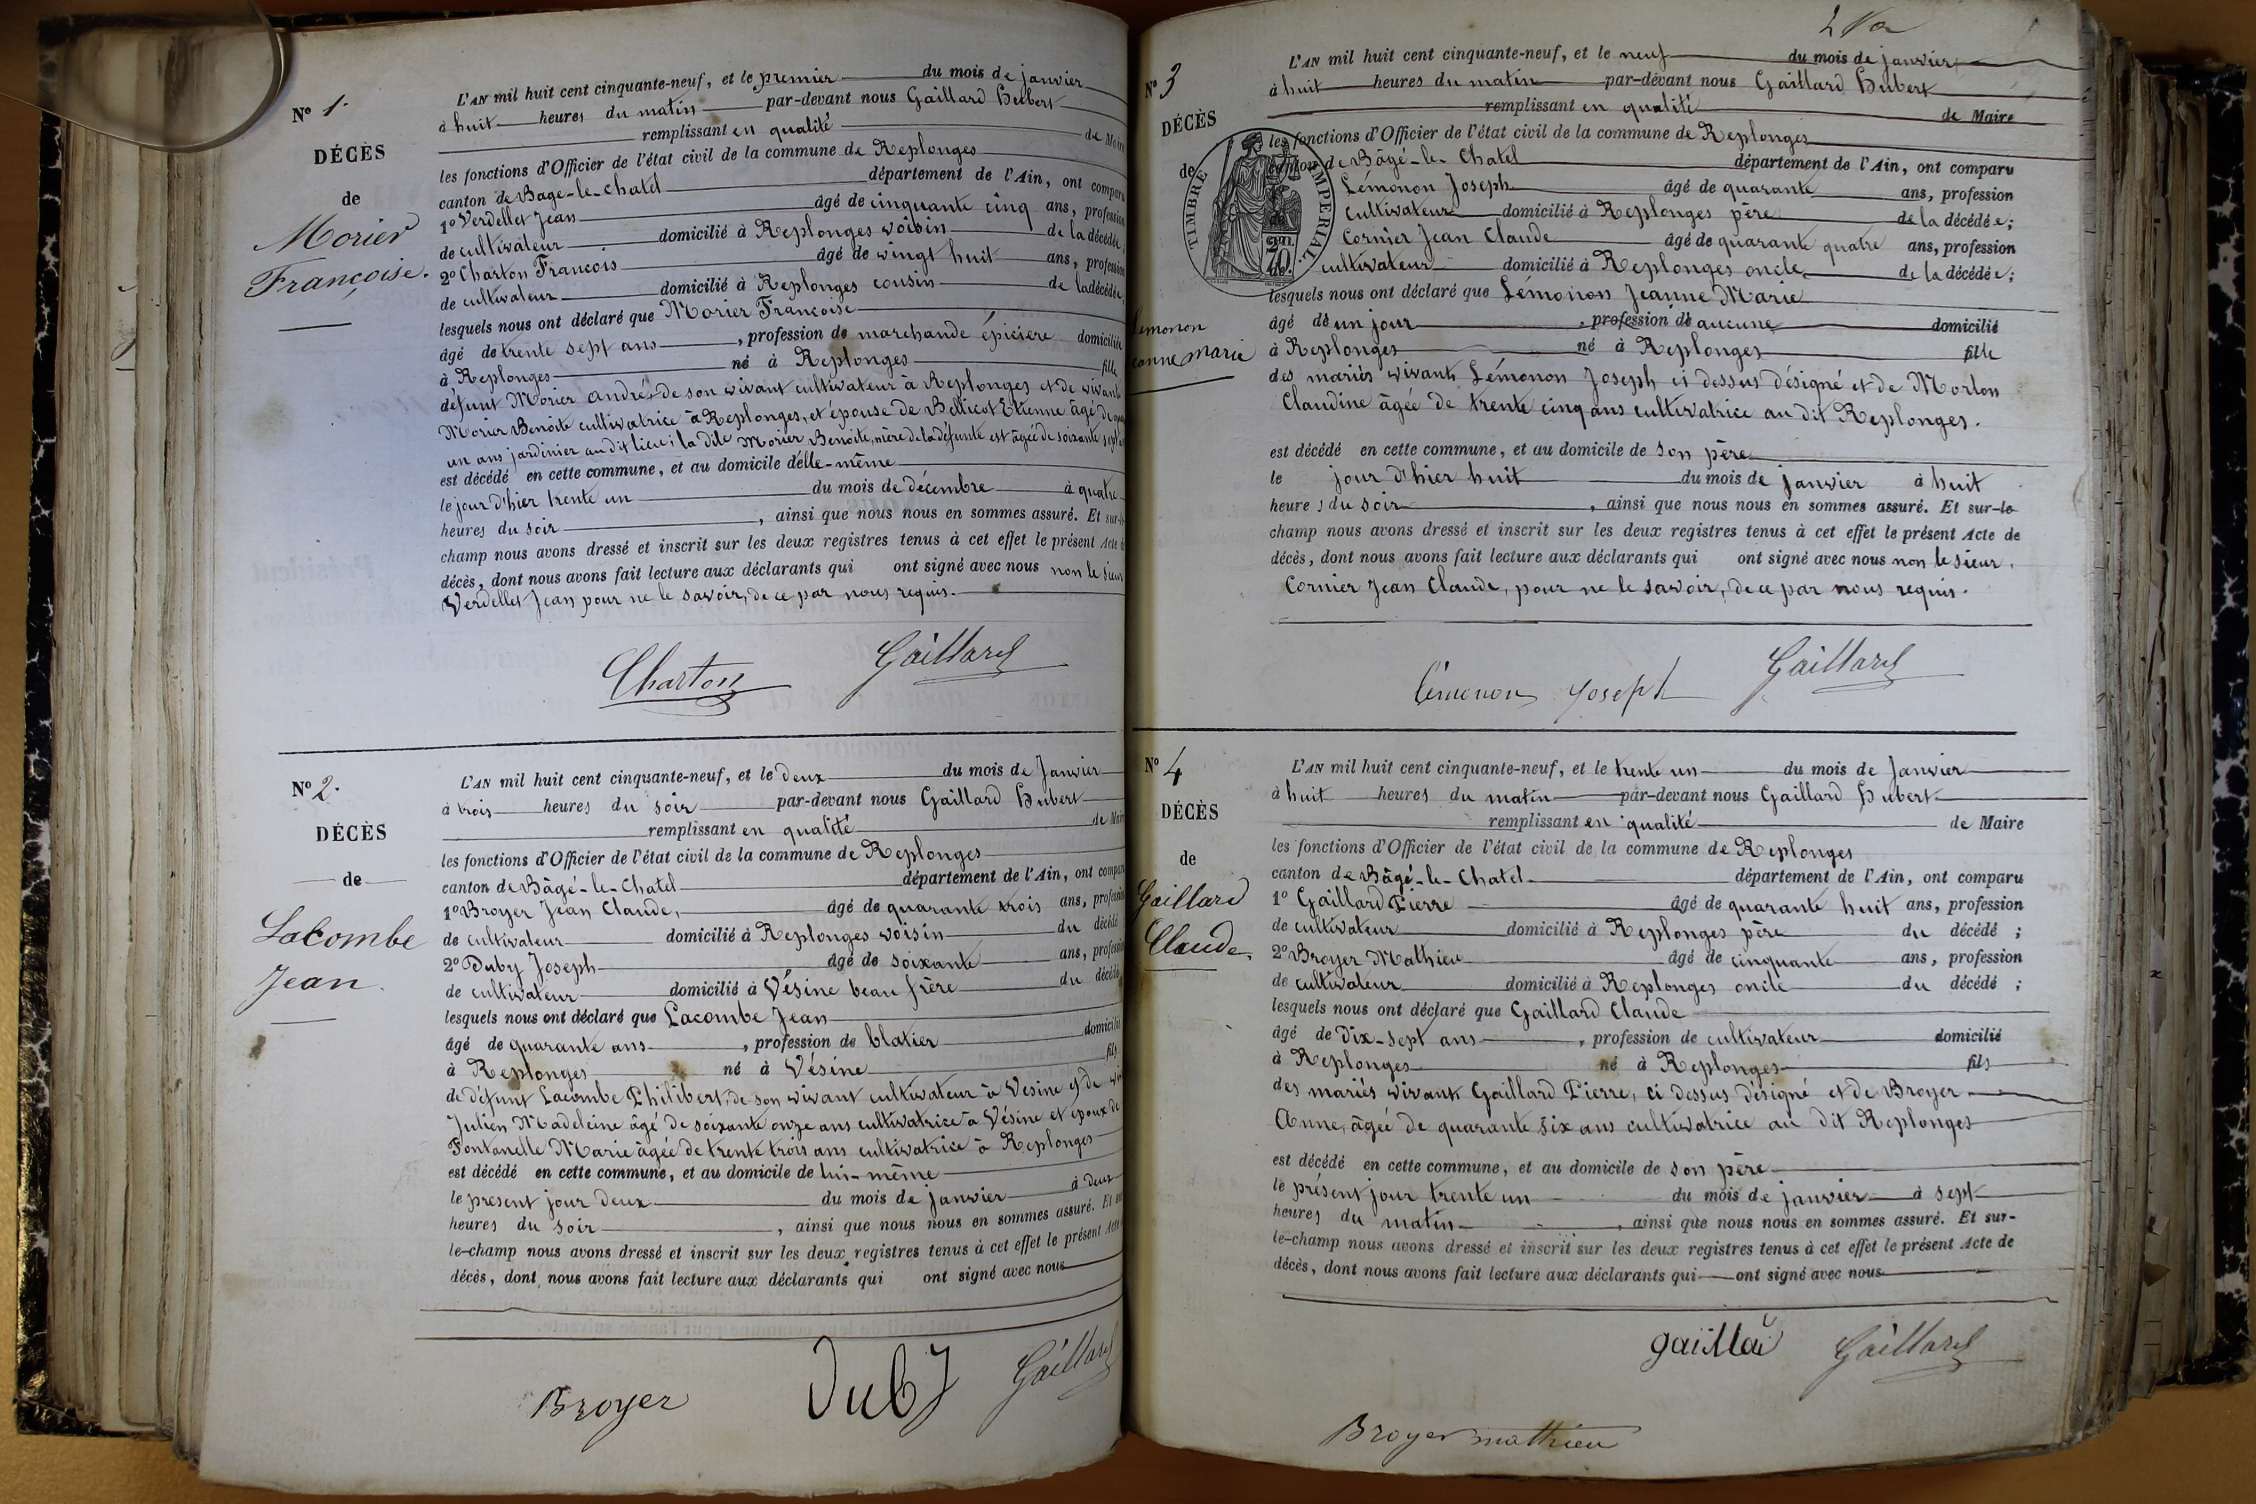 Nº 1.
DÉCÈS
de
Morier
Françoise.
L'AN mil huit cent cinquante-neuf, et le premier du mois de janvier
à huit heures du matin par-devant nous Gaillard Hubert
remplissant en qualité de Maire
les fonctions d'Officier de l'état civil de la commune de Replonges
canton de Bagé-le-Chatel département de l'Ain, ont comparu
1º Verdellet Jean âgé de cinquante cinq ans, profession
de cultivateur domicilié à Replonges voisin de la décédée;
2º Charton François âgé de vingt huit ans, profession
de cultivateur domicilié à Replonges cousin de la décédée;
lesquels nous ont déclaré que Morier Françoise
âgé de trente sept ans, profession de marchande épicière domicilié
à Replonges né à Replonges fille
défunt Morier André, de son vivant cultivateur à Replonges et de vivante
Morier Benoite cultivatrice à Replonges, et épouse de Bellicot Etienne âgé de
un ans jardinier au dit lieu; la dite Morier Benoite, mère de la défunte est âgée de soixante sept
est décédé en cette commune, et au domicile d'elle-même
le jour d'hier trente un du mois de décembre à quatre
heures du soir, ainsi que nous nous en sommes assuré. Et sur-le-
champ nous avons dressé et inscrit sur les deux registres tenus à cet effet le présent Acte de
décès, dont nous avons fait lecture aux déclarants qui ont signé avec nous non le sieur
Verdellet Jean pour ne le savoir, de ce par nous requis.
Charton Gaillard
Nº 2.
DÉCÈS
de
Lacombe
Jean.
L'AN mil huit cent cinquante-neuf, et le deux du mois de Janvier
à trois heures du soir par-devant nous Gaillard Hubert
remplissant en qualité de Maire
les fonctions d'Officier de l'état civil de la commune de Replonges
canton de Bâgé-le-Chatel département de l'Ain, ont comparu
1º Broyer Jean Claude, âgé de quarante trois ans, profession
de cultivateur domicilié à Replonges voisin du décédé
2º Duby Joseph âgé de soixante ans, profession
de cultivateur domicilié à Vésine beau frère du décédé
lesquels nous ont déclaré que Lacombe Jean
âgé de quarante ans, profession de blatier domicilié
à Replonges né à Vésine fils
de défunt Lacombe Philibert, de son vivant cultivateur à Vesine et de
Julien Madeleine âgé de soixante onze ans cultivatrice à Vésine et époux de
Fontanelle Marie âgée de trente trois ans cultivatrice à Replonges
est décédé en cette commune, et au domicile de lui-même
le présent jour deux du mois de janvier à deux
heures du soir, ainsi que nous nous en sommes assuré. Et sur-
le-champ nous avons dressé et inscrit sur les deux registres tenus à cet effet le présent Acte
décès, dont nous avons fait lecture aux déclarants qui ont signé avec nous
Broyer Duby Gaillard
Nº 3
DÉCÈS
de
Lémonon
Jeanne Marie
TIMBRE IMPÉRIAL
L'AN mil huit cent cinquante-neuf, et le neuf du mois de janvier
à huit heures du matin par-devant nous Gaillard Hubert
remplissant en qualité de Maire
les fonctions d'Officier de l'état civil de la commune de Replonges
canton de Bâgé-le-Chatel département de l'Ain, ont comparu
Lémonon Joseph âgé de quarante ans, profession
cultivateur domicilié à Replonges père de la décédée;
Cornier Jean Claude âgé de quarante quatre ans, profession
cultivateur domicilié à Replonges oncle de la décédée;
lesquels nous ont déclaré que Lémonon Jeanne Marie
âgé de un jour, profession de aucune domicilié
à Replonges né à Replonges fille
des mariés vivants Lémonon Joseph ci dessus désigné et de Morlon
Claudine âgée de trente cinq ans cultivatrice au dit Replonges.
est décédé en cette commune, et au domicile de son père
le jour d'hier huit du mois de janvier à huit
heures du soir, ainsi que nous nous en sommes assuré. Et sur-le-
champ nous avons dressé et inscrit sur les deux registres tenus à cet effet le présent Acte de
décès, dont nous avons fait lecture aux déclarants qui ont signé avec nous non le sieur
Cornier Jean Claude, pour ne le savoir, de ce par nous requis.
Lémonon Joseph Gaillard
Nº 4
DÉCÈS
de
Gaillard
Claude.
L'AN mil huit cent cinquante-neuf, et le trente un du mois de Janvier
à huit heures du matin par-devant nous Gaillard Hubert
remplissant en qualité de Maire
les fonctions d'Officier de l'état civil de la commune de Replonges
canton de Bâgé-le-Chatel département de l'Ain, ont comparu
1º Gaillard Pierre âgé de quarante huit ans, profession
de cultivateur domicilié à Replonges père du décédé;
2º Broyer Mathieu âgé de cinquante ans, profession
de cultivateur domicilié à Replonges oncle du décédé;
lesquels nous ont déclaré que Gaillard Claude
âgé de Dix-sept ans, profession de cultivateur domicilié
à Replonges né à Replonges fils
des mariés vivants Gaillard Pierre, ci dessus désigné et de Broyer
Anne, âgée de quarante six ans cultivatrice au dit Replonges
est décédé en cette commune, et au domicile de son père
le présent jour trente un du mois de janvier à sept
heures du matin, ainsi que nous nous en sommes assuré. Et sur-
le-champ nous avons dressé et inscrit sur les deux registres tenus à cet effet le présent Acte de
décès, dont nous avons fait lecture aux déclarants qui ont signé avec nous
gaillar Gaillard
Broyer mathieu